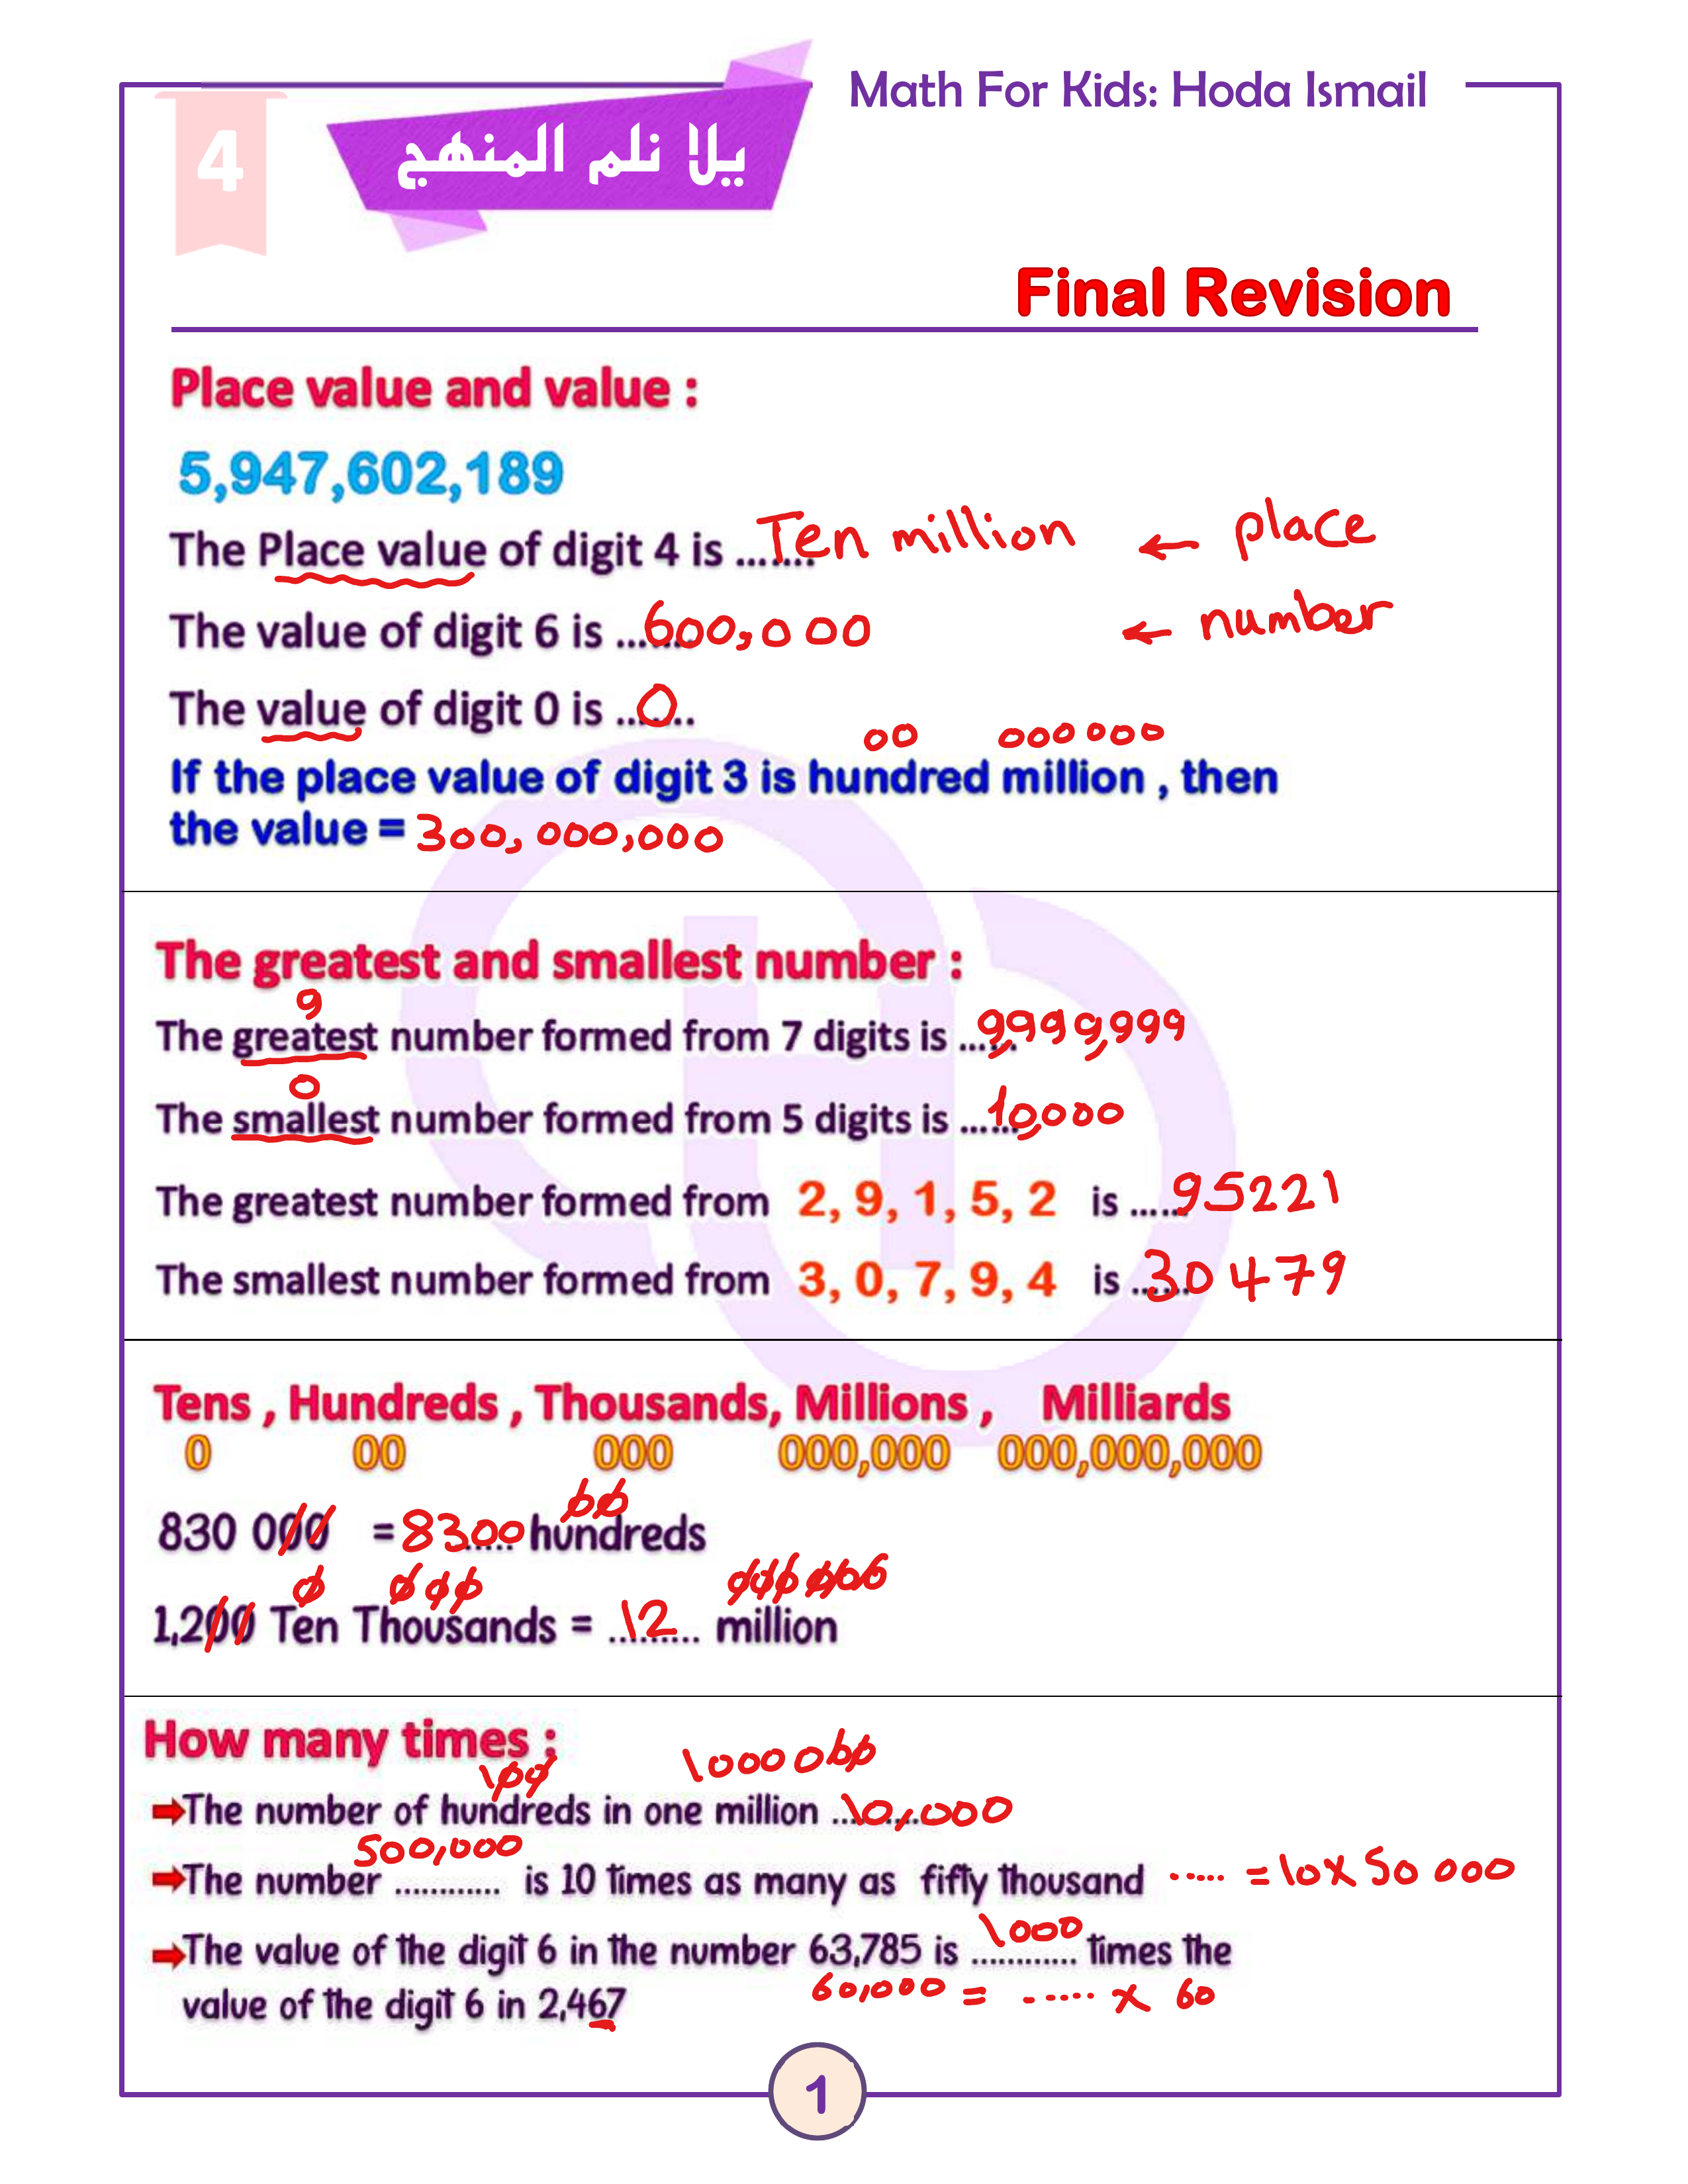 Math For Kids: Hoda Ismail
4
يلا نلم المنهج
Final Revision
Place value and value :
5,947,602,189
The Place value of digit 4 is ....... Ten million ← place
The value of digit 6 is ....... 600,000 ← number
The value of digit 0 is ....... 0
00 000000
If the place value of digit 3 is hundred million , then
the value = 300,000,000
The greatest and smallest number :
9
The greatest number formed from 7 digits is ...... 9,999,999
0
The smallest number formed from 5 digits is ...... 10,000
The greatest number formed from 2, 9, 1, 5, 2 is ...... 95221
The smallest number formed from 3, 0, 7, 9, 4 is ...... 30479
Tens , Hundreds , Thousands, Millions , Milliards
0 00 000 000,000 000,000,000
00
830 000 = 8300 hundreds
0 000 000000
1,200 Ten Thousands = ...12... million
How many times :
100 1000000
➡The number of hundreds in one million ... 10,000
500,000
➡The number ............ is 10 times as many as fifty thousand ..... = 10 x 50 000
1000
➡The value of the digit 6 in the number 63,785 is ............ times the
60,000 = ..... x 60
value of the digit 6 in 2,467
1